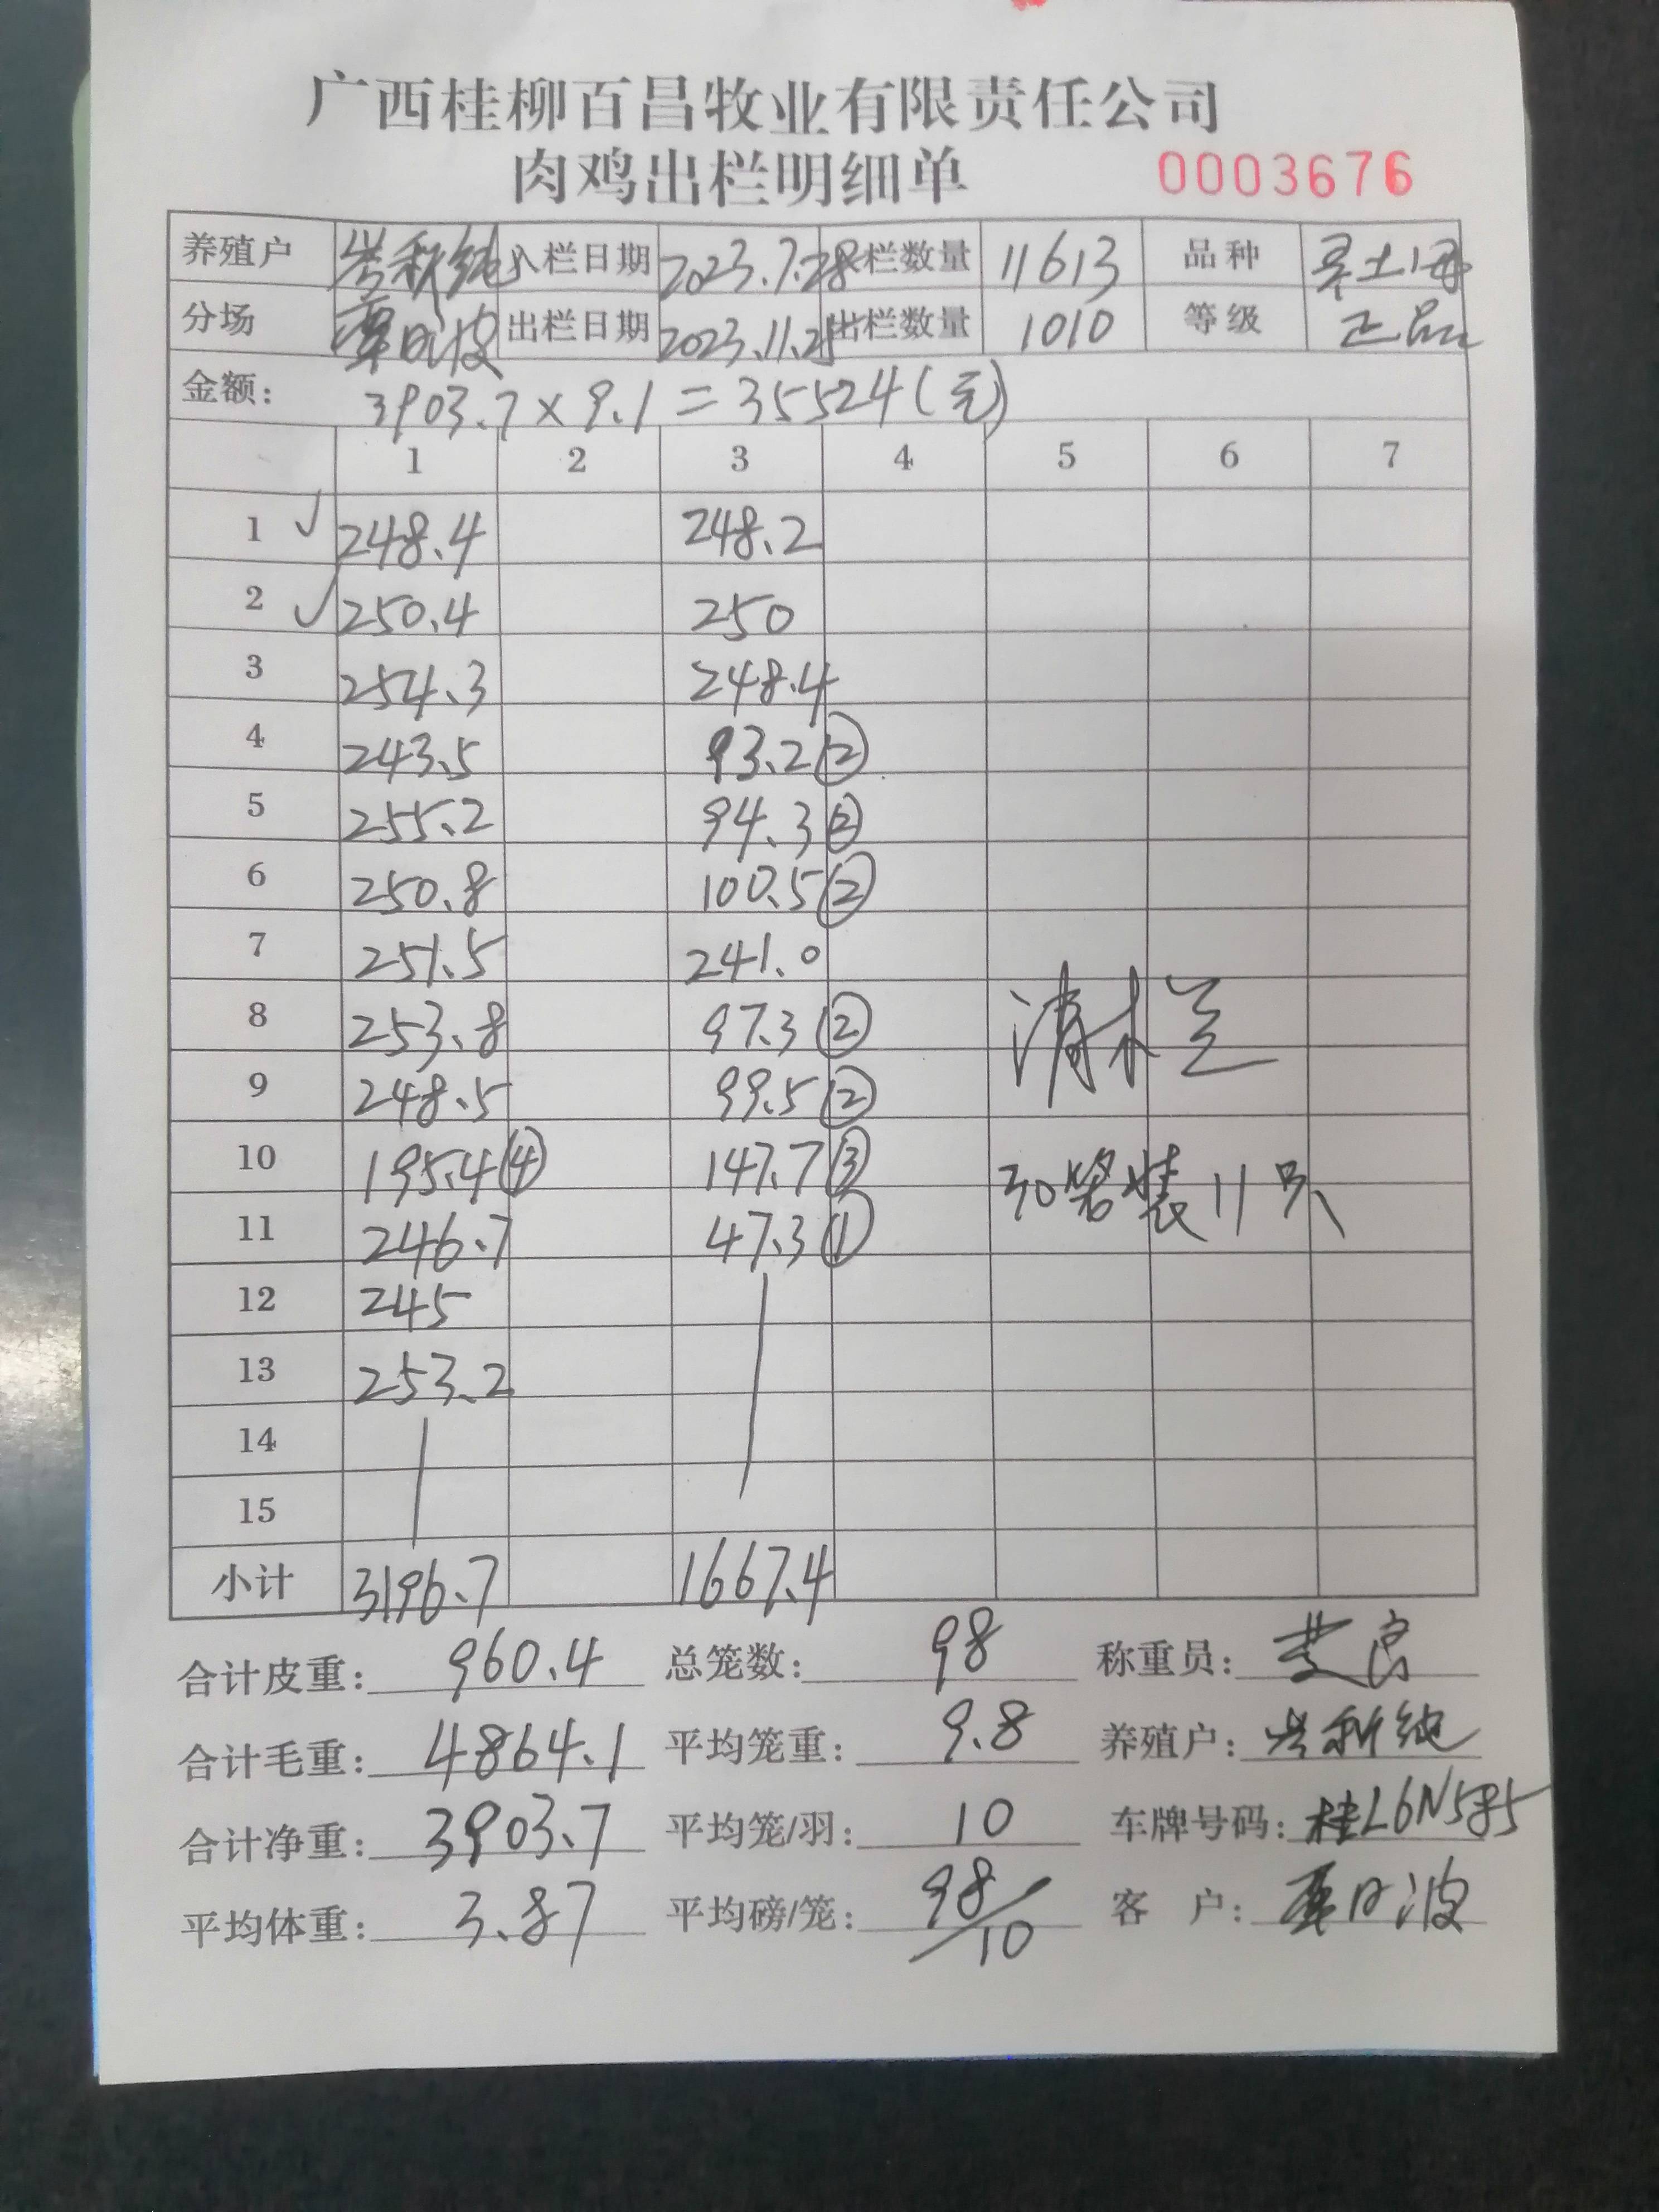 广西桂柳百昌牧业有限责任公司
肉鸡出栏明细单 0003676
养殖户 入栏日期 2023.7.28 栏数量 11613 品种 土
分场 覃日波 出栏日期 2023.11.25 出栏数量 1010 等级 正品
金额: 3903.7 × 9.1 = 35524(元)
1 2 3 4 5 6 7
1 ✓ 248.4 248.2
2 ✓ 250.4 250
3 254.3 248.4
4 243.5 93.2 ②
5 255.2 94.3 ②
6 250.8 100.5 ②
7 251.5 241.0
8 253.8 97.3 ② 清木兰
9 248.5 99.5 ②
10 195.4 ④ 147.7 ③ 30笼装11只
11 246.7 47.3 ①
12 245
13 253.2
14
15
小计 3196.7 1667.4
合计皮重: 960.4 总笼数: 98 称重员:
合计毛重: 4864.1 平均笼重: 9.8 养殖户:
合计净重: 3903.7 平均笼/羽: 10 车牌号码: 桂L6N585
平均体重: 3.87 平均磅/笼: 98/10 客户: 覃日波